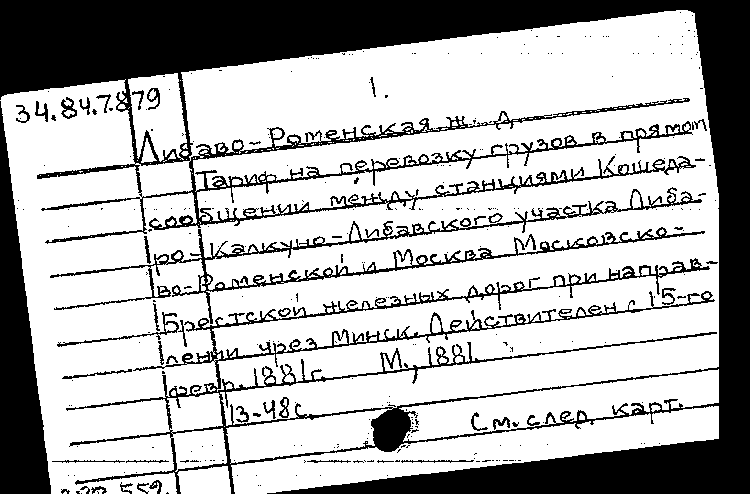 34.84.7.879
1.
Либаво-Роменская ж. д.
Тариф на перевозку грузов в прямом
сообщении между станциями Кошеда-
ро-Калкуно-Либавского участка Либа-
во-Роменской и Москва Московско-
Брестской железных дорог при направ-
лении чрез Минск. Действителен с 15-го
февр. 1881 г. М., 1881.
13-48 с.
См. след. карт.
559.